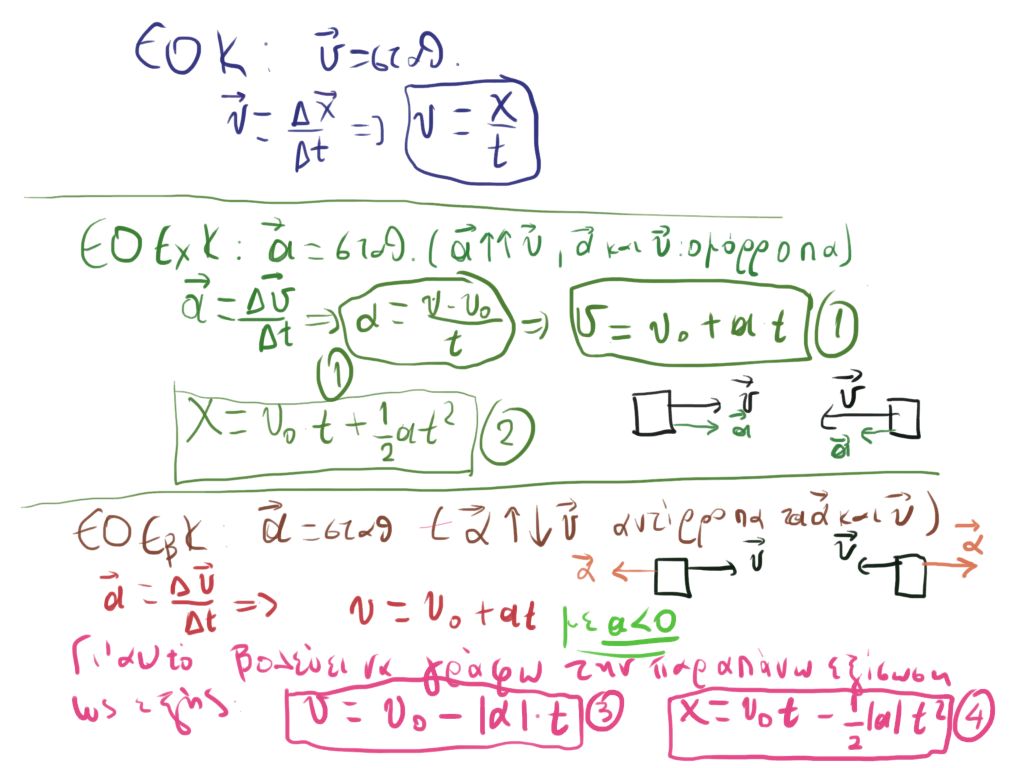 ΕΟΚ: v⃗=σταθ.
v⃗ = Δx⃗/Δt => v = x/t
ΕΟΕχΚ: a⃗ = σταθ. (a⃗↑↑v⃗, a⃗ και v⃗: ομόρροπα)
a⃗ = Δv⃗/Δt => α = v-v₀/t => v = v₀ + a t ①
①
x = v₀ t + 1/2 at² ②
v⃗ a⃗ v⃗ a⃗
ΕΟΕβΚ: a⃗ = σταθ ( α⃗↑↓v⃗ αντίρροπα τα a⃗ και v⃗)
α⃗ v⃗ v⃗ α⃗
a⃗ = Δv⃗/Δt => v = v₀ + at με a<0
Γι'αυτό βολεύει να γράφω την παραπάνω εξίσωση
ως εξής v = v₀ - |α|·t ③ x = v₀t - 1/2|a|t² ④